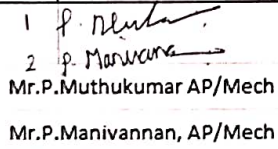 1 P.
2 P. Manivanna
Mr.P.Muthukumar AP/Mech
Mr.P.Manivannan, AP/Mech